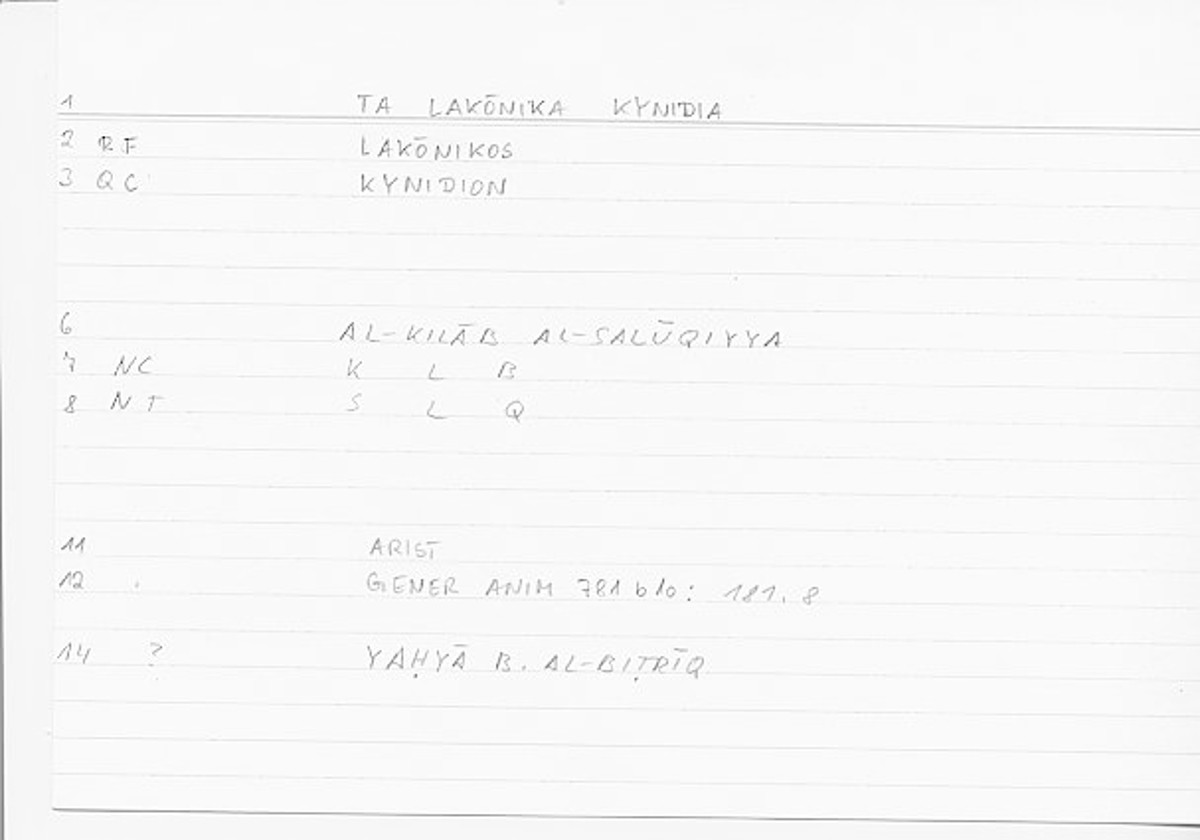 1 TA LAKŌNIKA KYNIDIA
2 RF LAKŌNIKOS
3 QC KYNIDION
6 AL-KILĀB AL-SALŪQIYYA
7 NC K L B
8 NT S L Q
11 ARIST
12 GENER ANIM 781 b 10: 181.8
14 ? YAḤYĀ B. AL-BIṬRĪQ